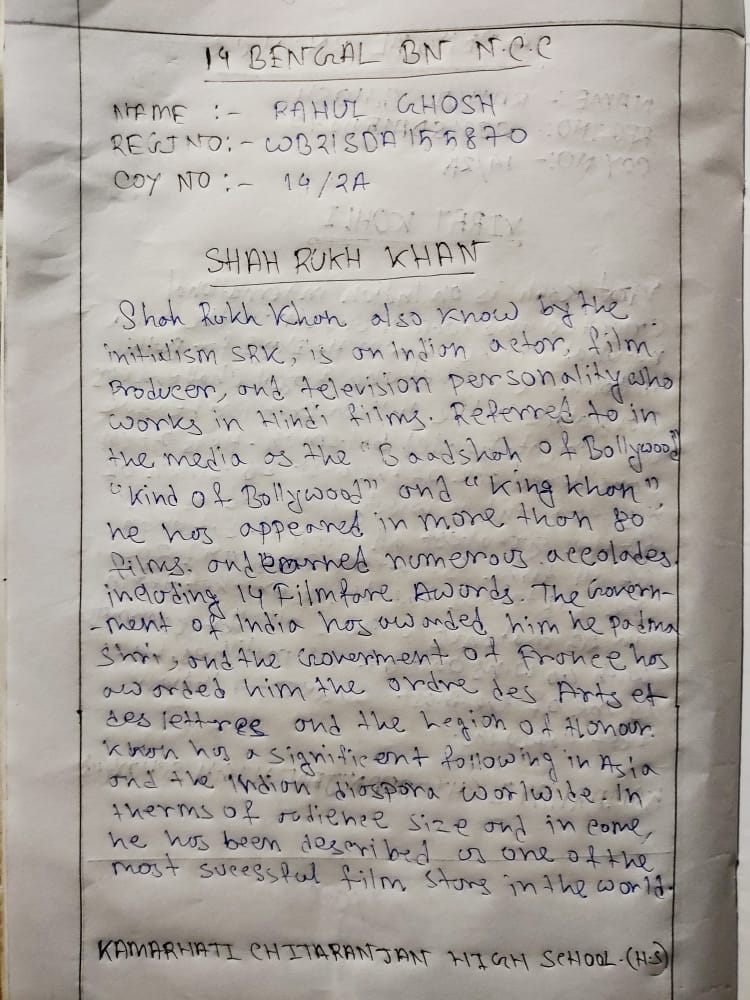 14 BENGAL BN N.C.C
NAME :- RAHUL GHOSH
REGI NO:- WB21SDA155870
COY NO :- 14/2A
SHAH RUKH KHAN
Shah Rukh Khan also know by the
initialism SRK, is an Indian actor, film
Producer, and television personality who
works in Hindi films. Referred to in
the media as the "Baadshah of Bollywood"
"Kind of Bollywood" and "King Khan",
he has appeared in more than 80
films. and earned numerous accolades.
including 14 Filmfare Awards. The Govern-
-ment of India has awarded him he Padma
Shri, and the Goverment of France has
aworded him the ordre des Arts et
des lettres and the Legion of Honour.
Khan has a significent following in Asia
and the Indian diaspora worlwide. In
therms of audience size and in come,
he has been described as one of the
most sucessful film stars in the world.
KAMARHATI CHITARANJAN HIGH SCHOOL-(H.S)